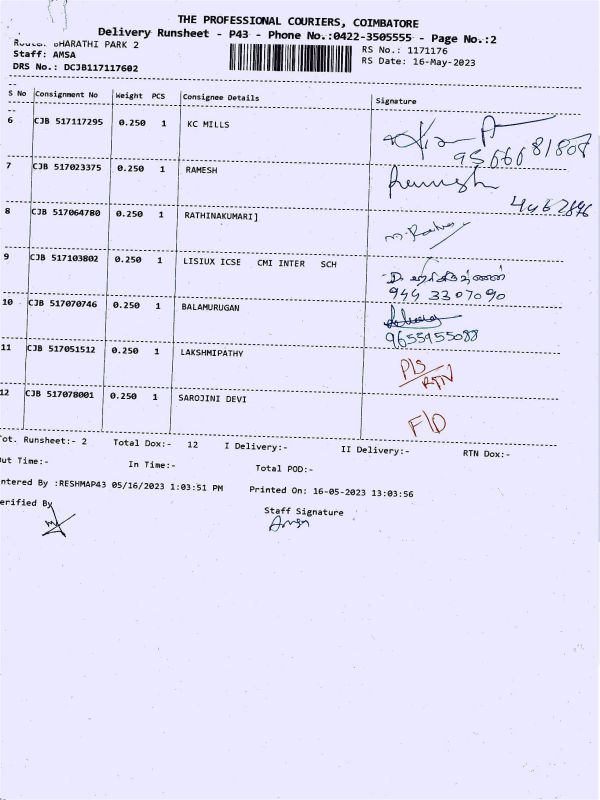 THE PROFESSIONAL COURIERS, COIMBATORE
Delivery Runsheet - P43 - Phone No.:0422-3505555 - Page No.:2
BHARATHI PARK 2
RS No.: 1171176
Staff: AMSA
RS Date: 16-May-2023
DRS No.: DCJB117117602
S No Consignment No Weight PCS Consignee Details Signature
6 CJB 517117295 0.250 1 KC MILLS
7 CJB 517023375 0.250 1 RAMESH Ramesh
8 CJB 517064780 0.250 1 RATHINAKUMARI]
9 CJB 517103802 0.250 1 LISIUX ICSE CMI INTER SCH
944 3307090
10 CJB 517070746 0.250 1 BALAMURUGAN
9655455088
11 CJB 517051512 0.250 1 LAKSHMIPATHY P/S
RTN
12 CJB 517078001 0.250 1 SAROJINI DEVI F/D
ot. Runsheet:- 2 Total Dox:- 12 I Delivery:- II Delivery:- RTN Dox:-
ut Time:- In Time:- Total POD:-
ntered By :RESHMAP43 05/16/2023 1:03:51 PM Printed On: 16-05-2023 13:03:56
erified By Staff Signature
Amsa